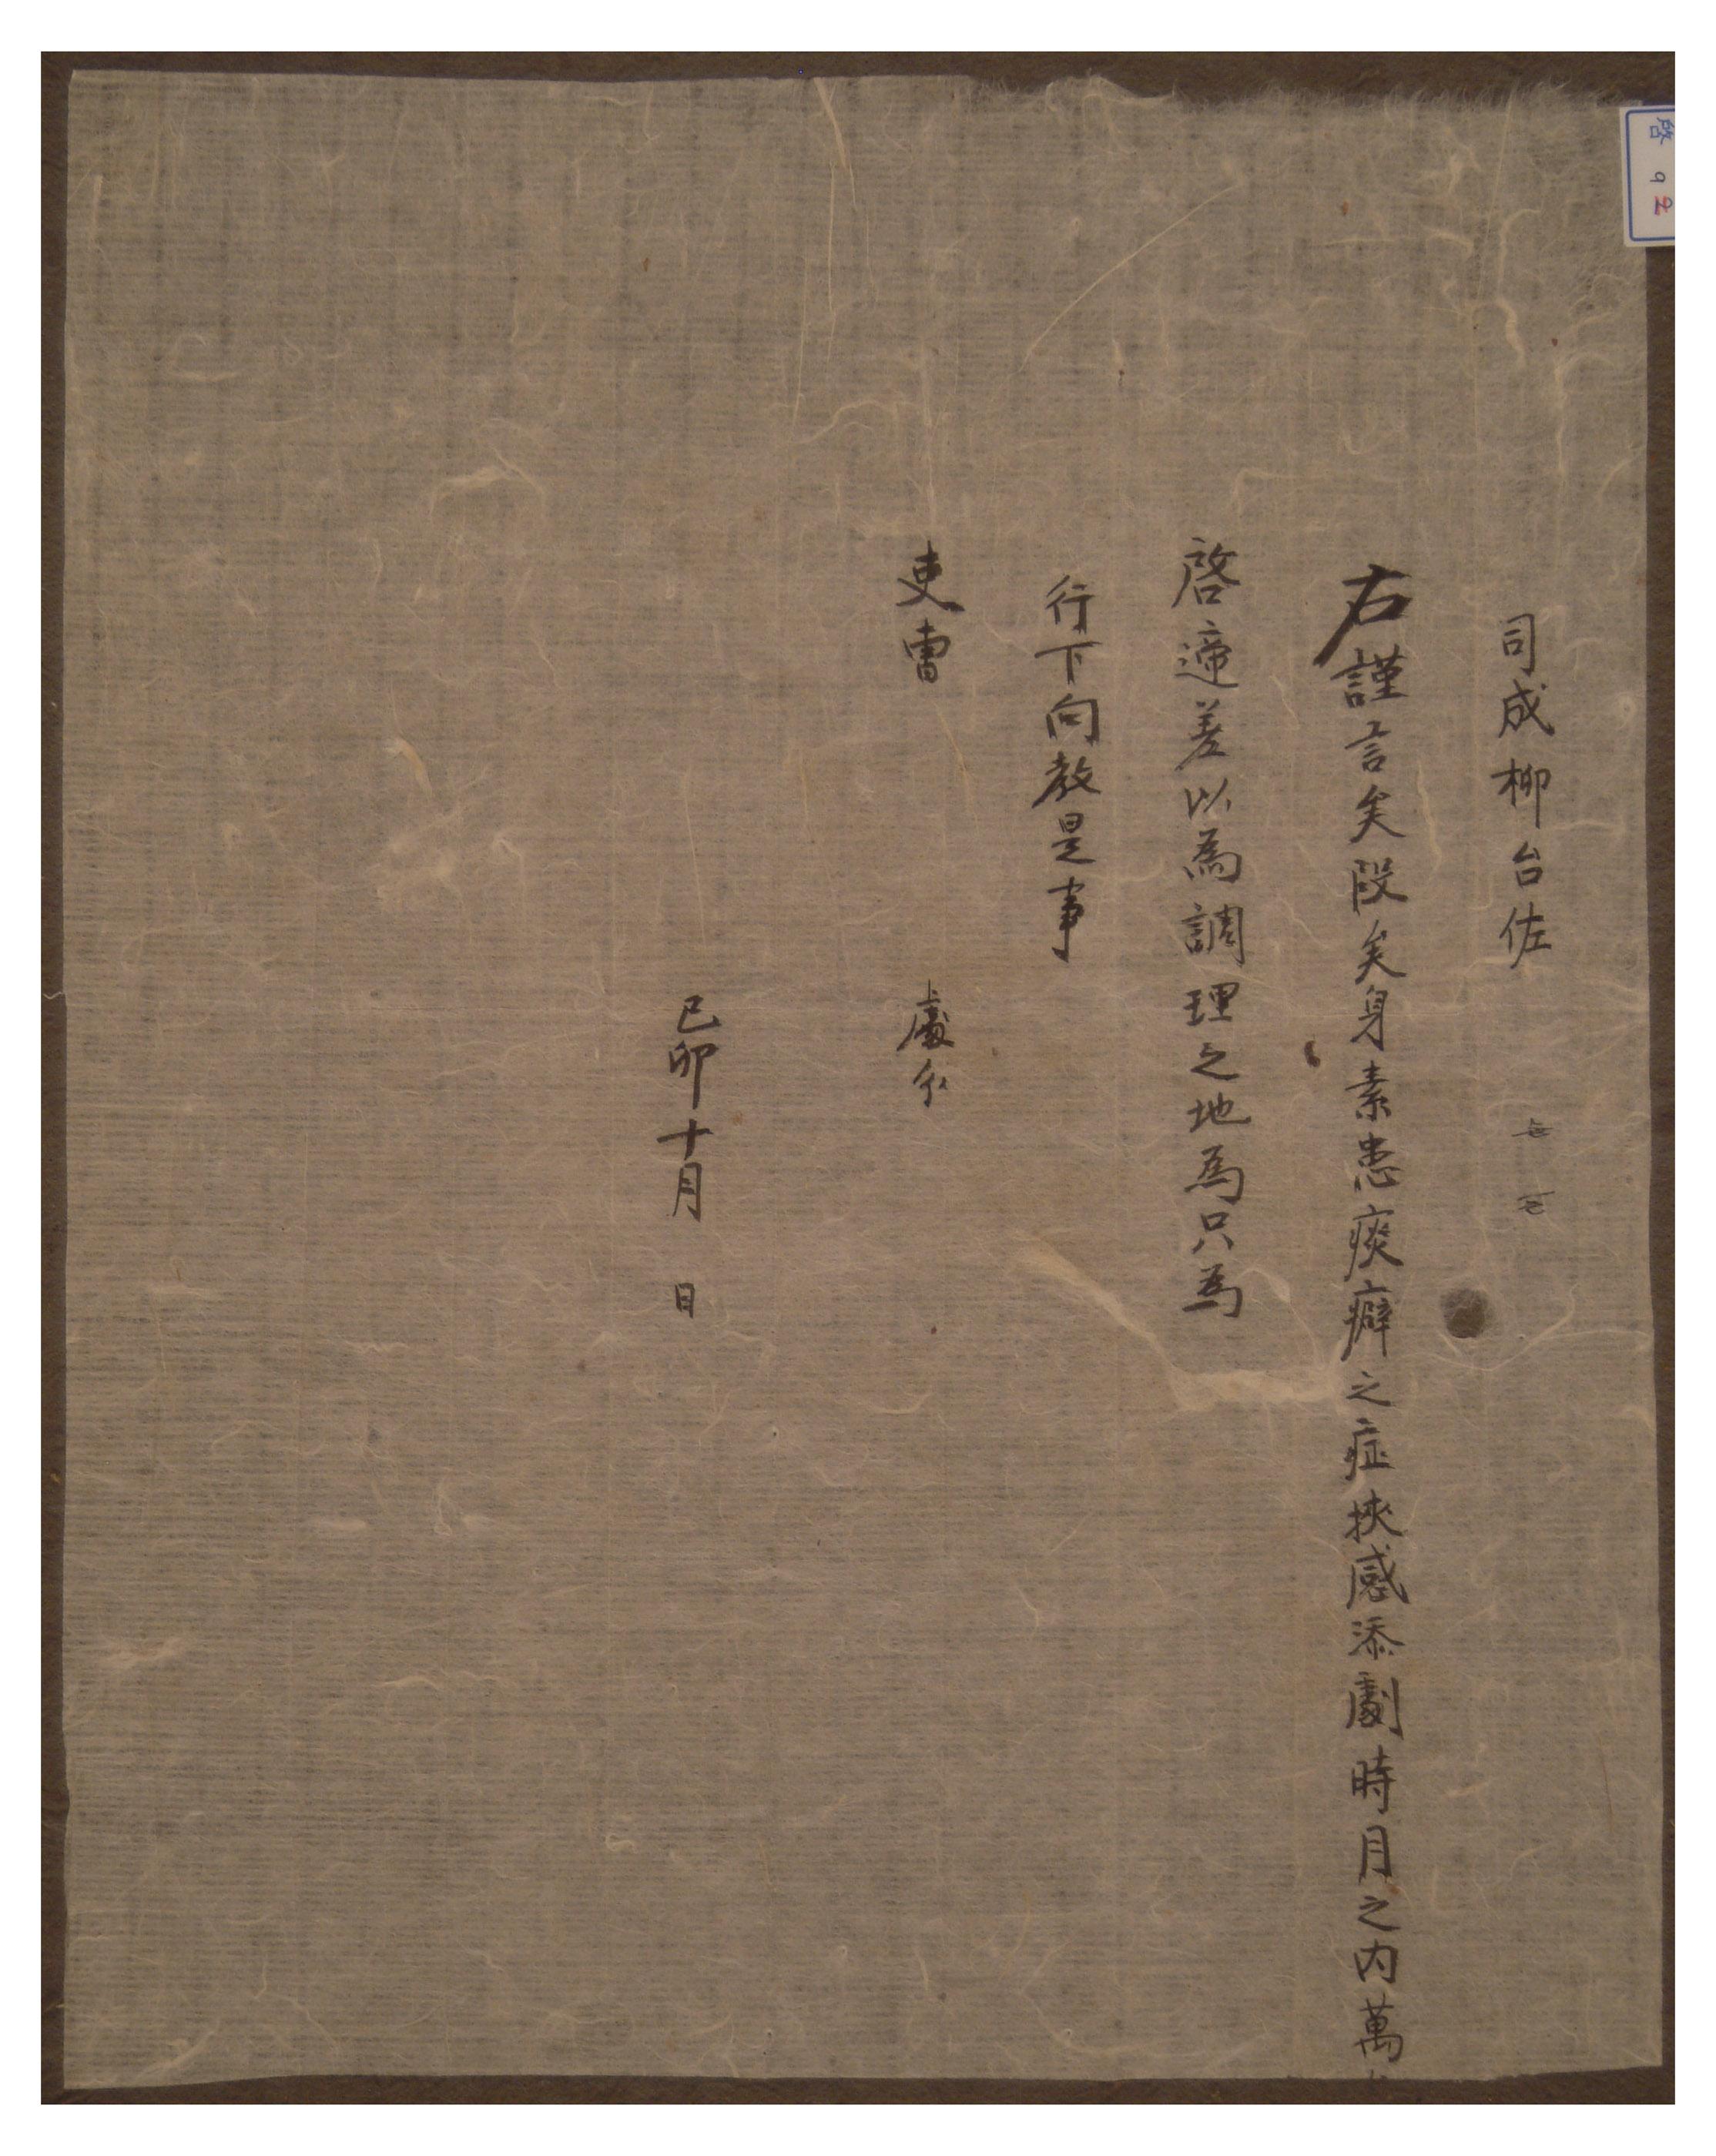 啓 92
司成柳台佐
右謹言矣段矣身素患痰癖之症挾感添劇時月之内萬
啓遞差以爲調理之地爲只爲
行下向敎是事
吏曺 處分
己卯十月 日